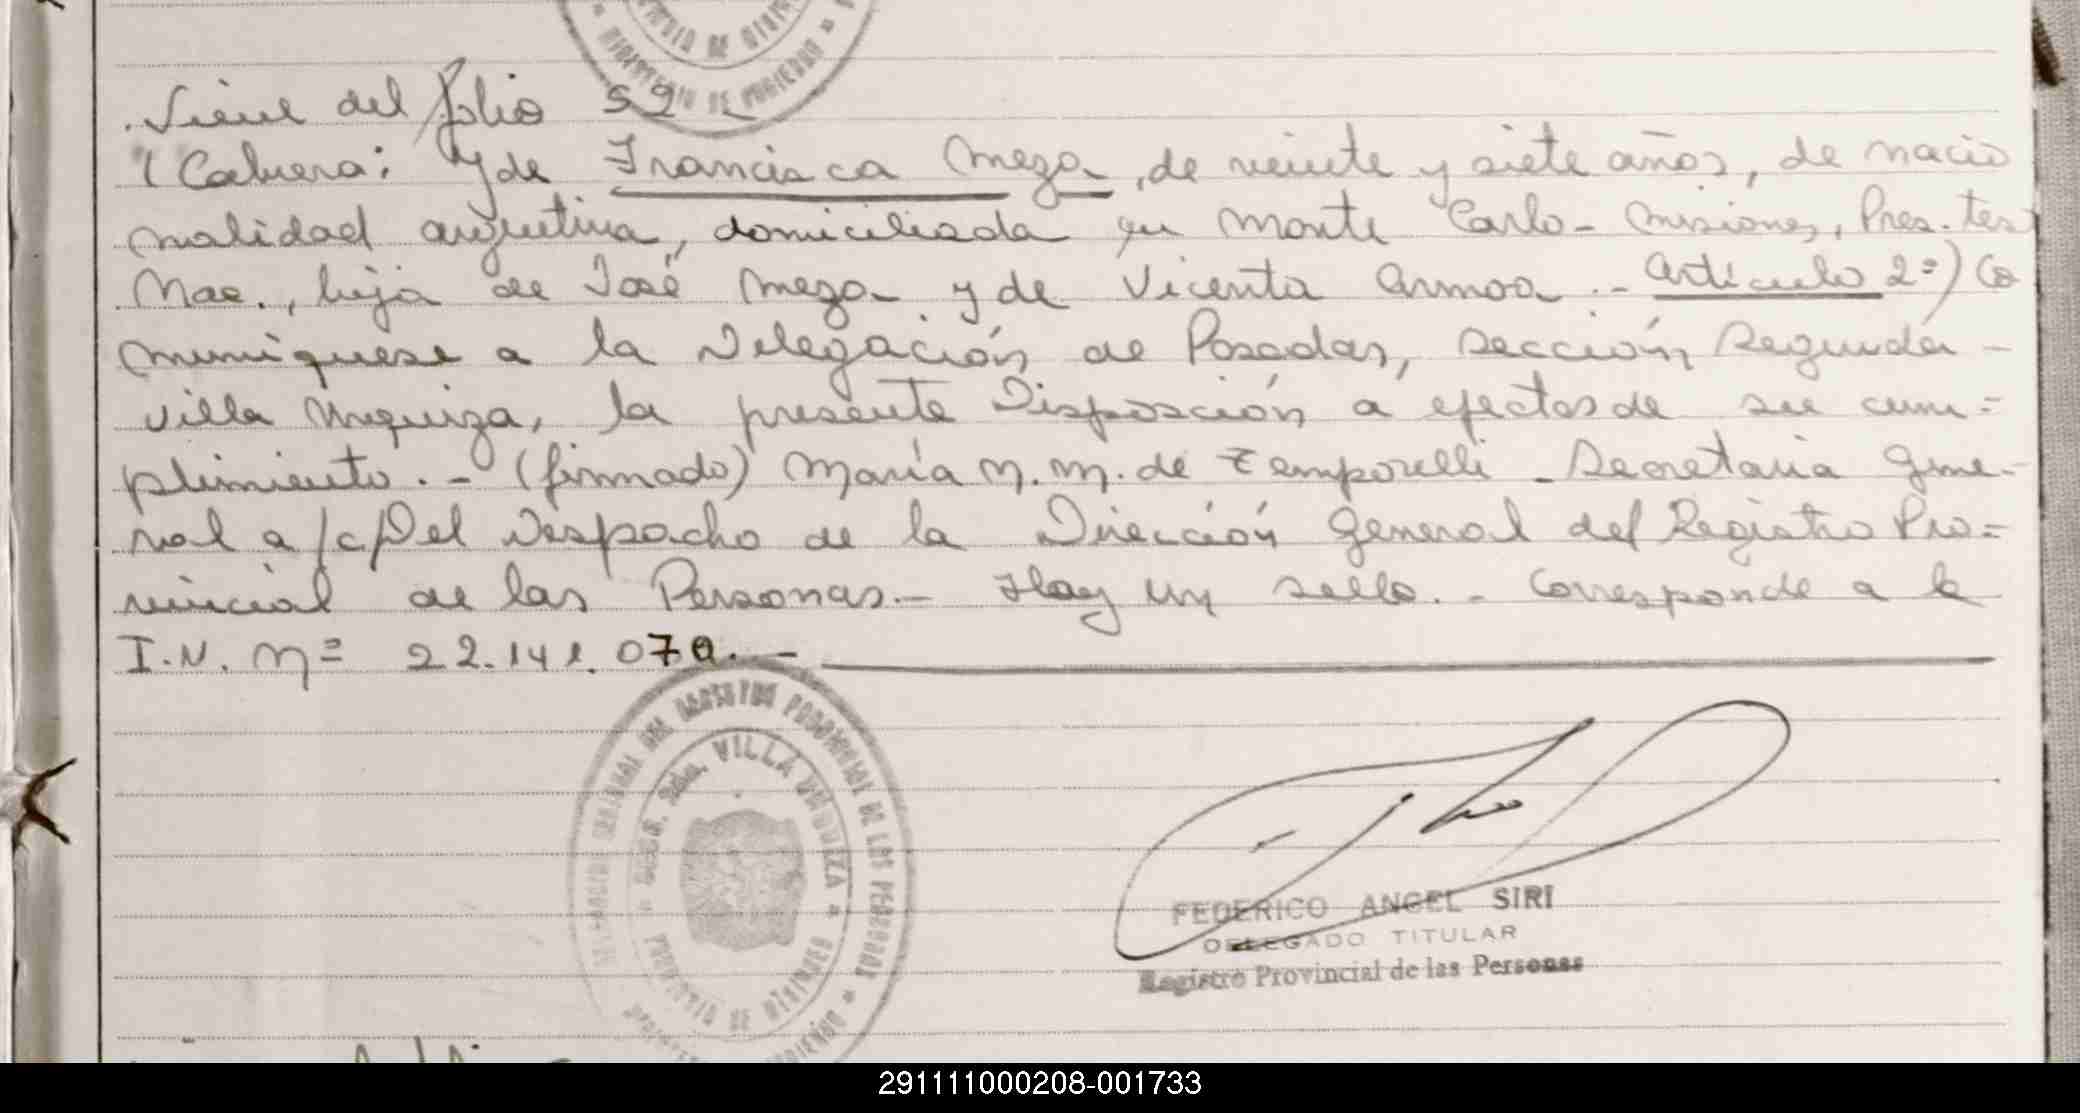 Viene del folio 52
(Cabrera; y de Francisca Meza, de veinte y siete años, de nacio
nalidad argentina, domiciliada en Monte Carlo - Misiones, Pres. tes
Nac., hija de José Meza y de Vicenta Armoa.- Artículo 2º) Co
muníquese a la Delegación de Posadas, Sección Segunda -
Villa Urquiza, la presente Disposición a efectos de su cum=
plimiento.- (firmado) María M. M. de Temporelli - Secretaria Gene-
ral a/c/Del Despacho de la Dirección General del Registro Pro=
vincial de las Personas.- Hay un sello.- Corresponde a la
I.N. Nº 22.141.070.-
REGISTRO PROVINCIAL DE LAS PERSONAS
Secc. 2da. VILLA URQUIZA
PROVINCIA DE MISIONES
FEDERICO ANGEL SIRI
DELEGADO TITULAR
Registro Provincial de las Personas
291111000208-001733